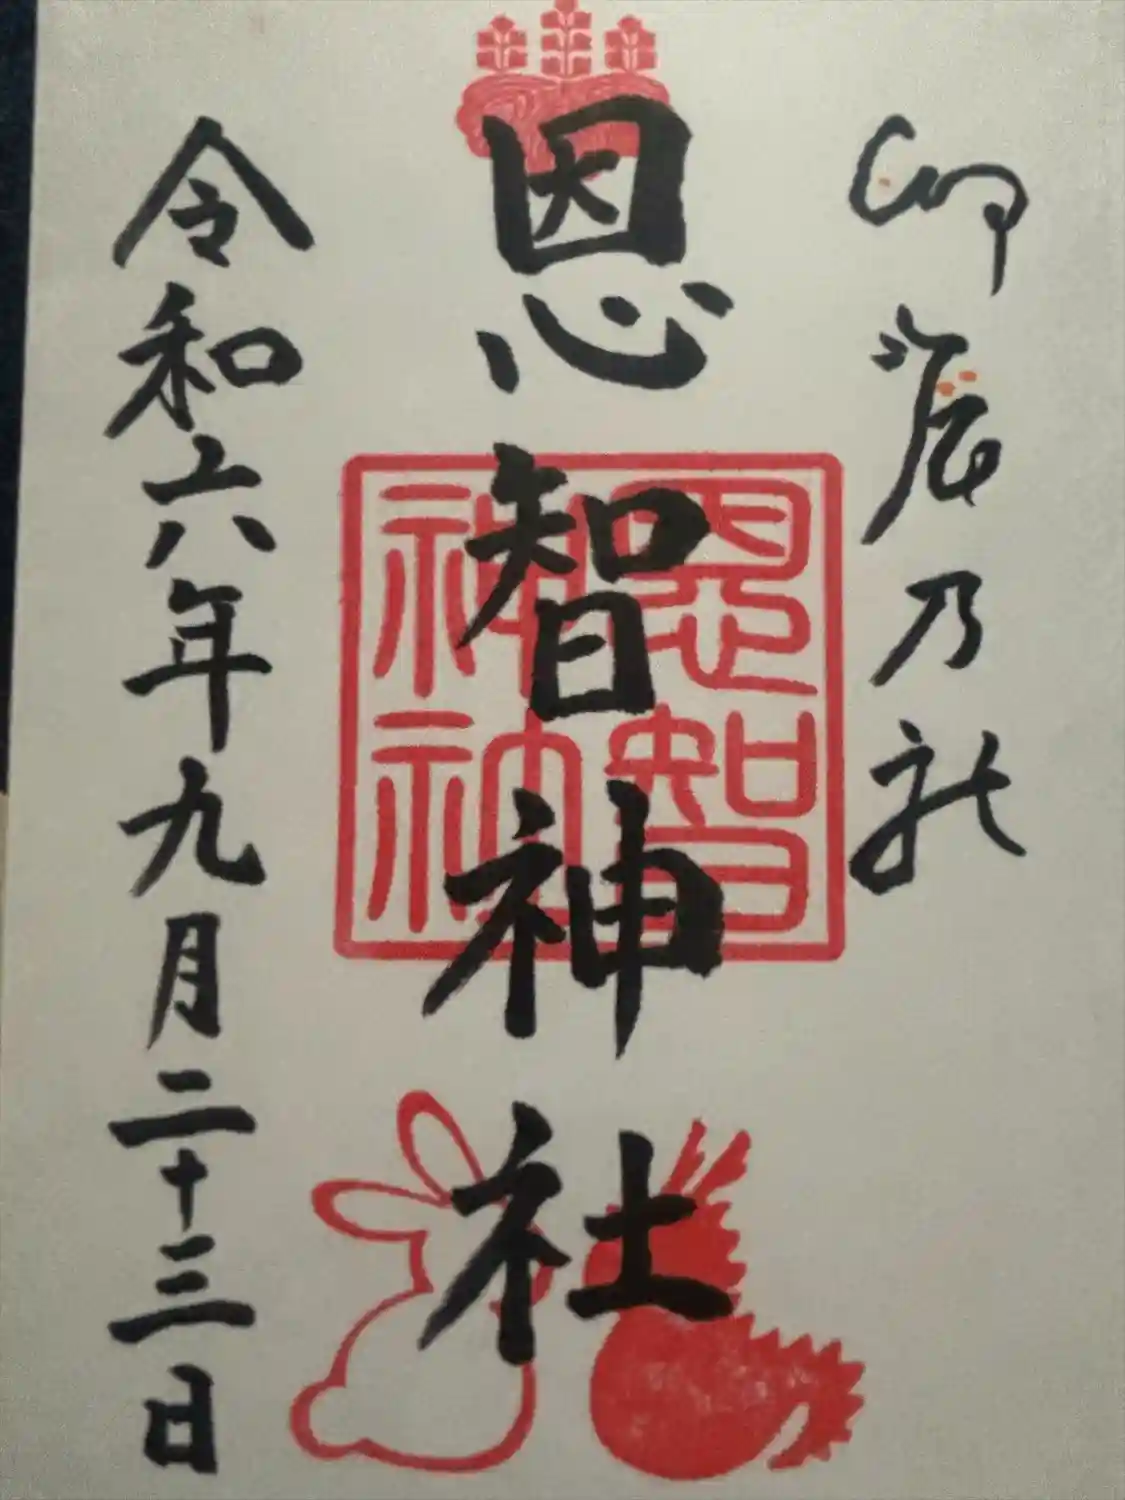 卯辰乃社
恩智神社
令和六年九月二十三日
恩智
神社